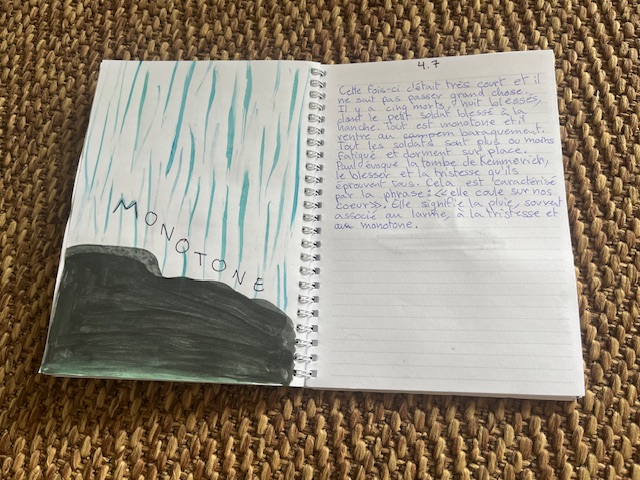 MONOTONE
4.7
Cette fois-ci c'était très court et il
ne sait pas passer grand chose.
Il y a cinq morts, huit blessés,
dont le petit soldat blessé à la
hanche. Tout est monotone et il
rentre au campem baraquement.
Tout les soldats sont plus ou moins
fatigué et dorment sur place.
Paul évoque la tombe de Kemmerich,
le blesser et la tristesse qu'ils
éprouvent tous. Cela est caractérisé
par la phrase : «elle coule sur nos
coeur». Elle signifie la pluie, souvent
associé au larme, à la tristesse et
au monotone.